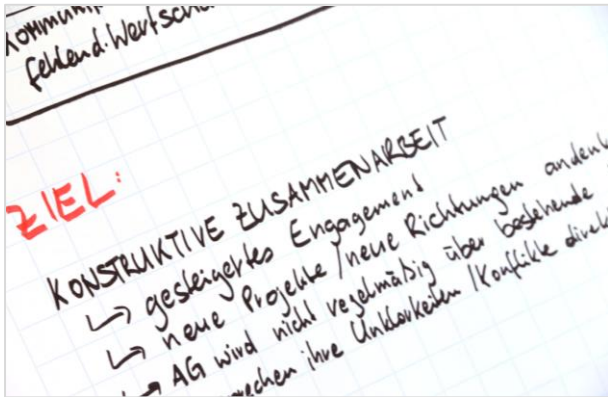 fehlend. Wertsch
ZIEL:
KONSTRUKTIVE ZUSAMMENARBEIT
↳ gesteigertes Engagement
↳ neue Projekte / neue Richtungen andenk
↳ AG wird nicht regelmäßig über bestehende
ihre Unklarkeiten / Konflikte direkt